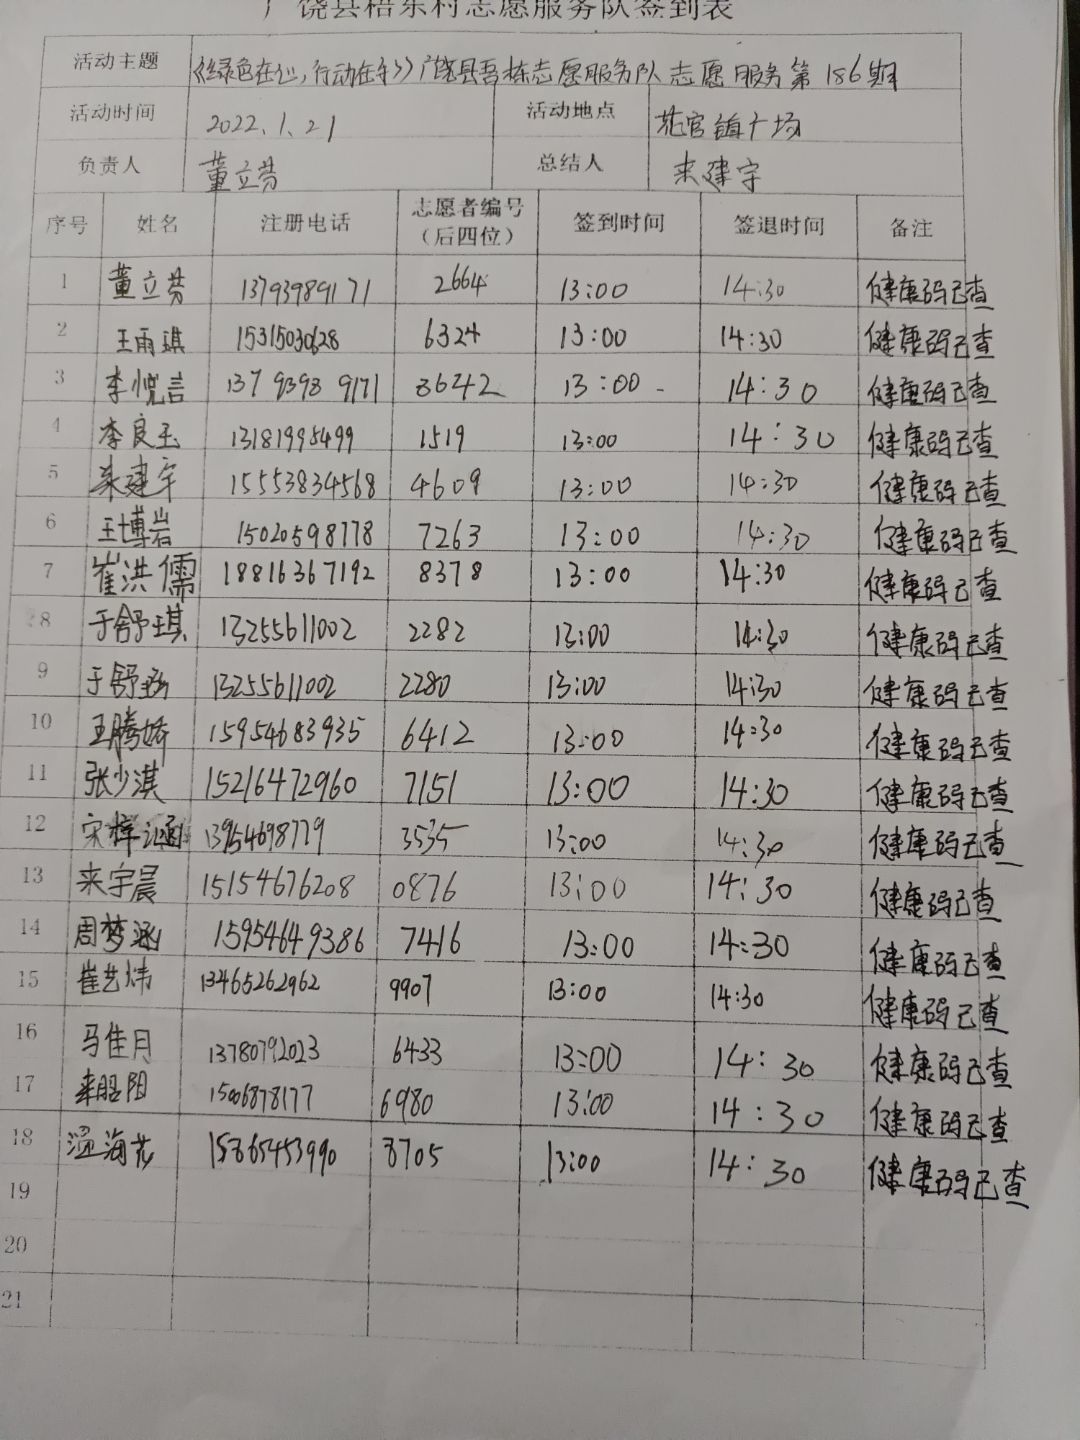 广饶县梧东村志愿服务队签到表
活动主题 《绿色在心,行动在手》广饶县吾栋志愿服务队志愿服务第186期
活动时间 2022.1.21 活动地点 花官镇广场
负责人 董立芬 总结人 来建宇
序号 姓名 注册电话 志愿者编号(后四位) 签到时间 签退时间 备注
1 董立芬 13793989171 2664 13:00 14:30 健康码已查
2 王雨琪 15315030628 6324 13:00 14:30 健康码已查
3 李悦言 13793989171 8642 13:00 14:30 健康码已查
4 李良玉 13181995499 1519 13:00 14:30 健康码已查
5 来建宇 15553834568 4609 13:00 14:30 健康码已查
6 王博岩 15020598778 7263 13:00 14:30 健康码已查
7 崔洪儒 18816367192 8378 13:00 14:30 健康码已查
8 于舒琪 13255611002 2282 13:00 14:30 健康码已查
9 于舒涵 13255611002 2280 13:00 14:30 健康码已查
10 王腾娇 15954683935 6412 13:00 14:30 健康码已查
11 张少淇 15216472960 7151 13:00 14:30 健康码已查
12 宋梓涵 13954698779 3535 13:00 14:30 健康码已查
13 来宇晨 15154676208 0876 13:00 14:30 健康码已查
14 周梦涵 15954649386 7416 13:00 14:30 健康码已查
15 崔艺炜 13465262962 9907 13:00 14:30 健康码已查
16 马佳月 13780792023 6433 13:00 14:30 健康码已查
17 6980 13:00 14:30 健康码已查
18 温海花 15865453990 8705 13:00 14:30 健康码已查
19
20
21